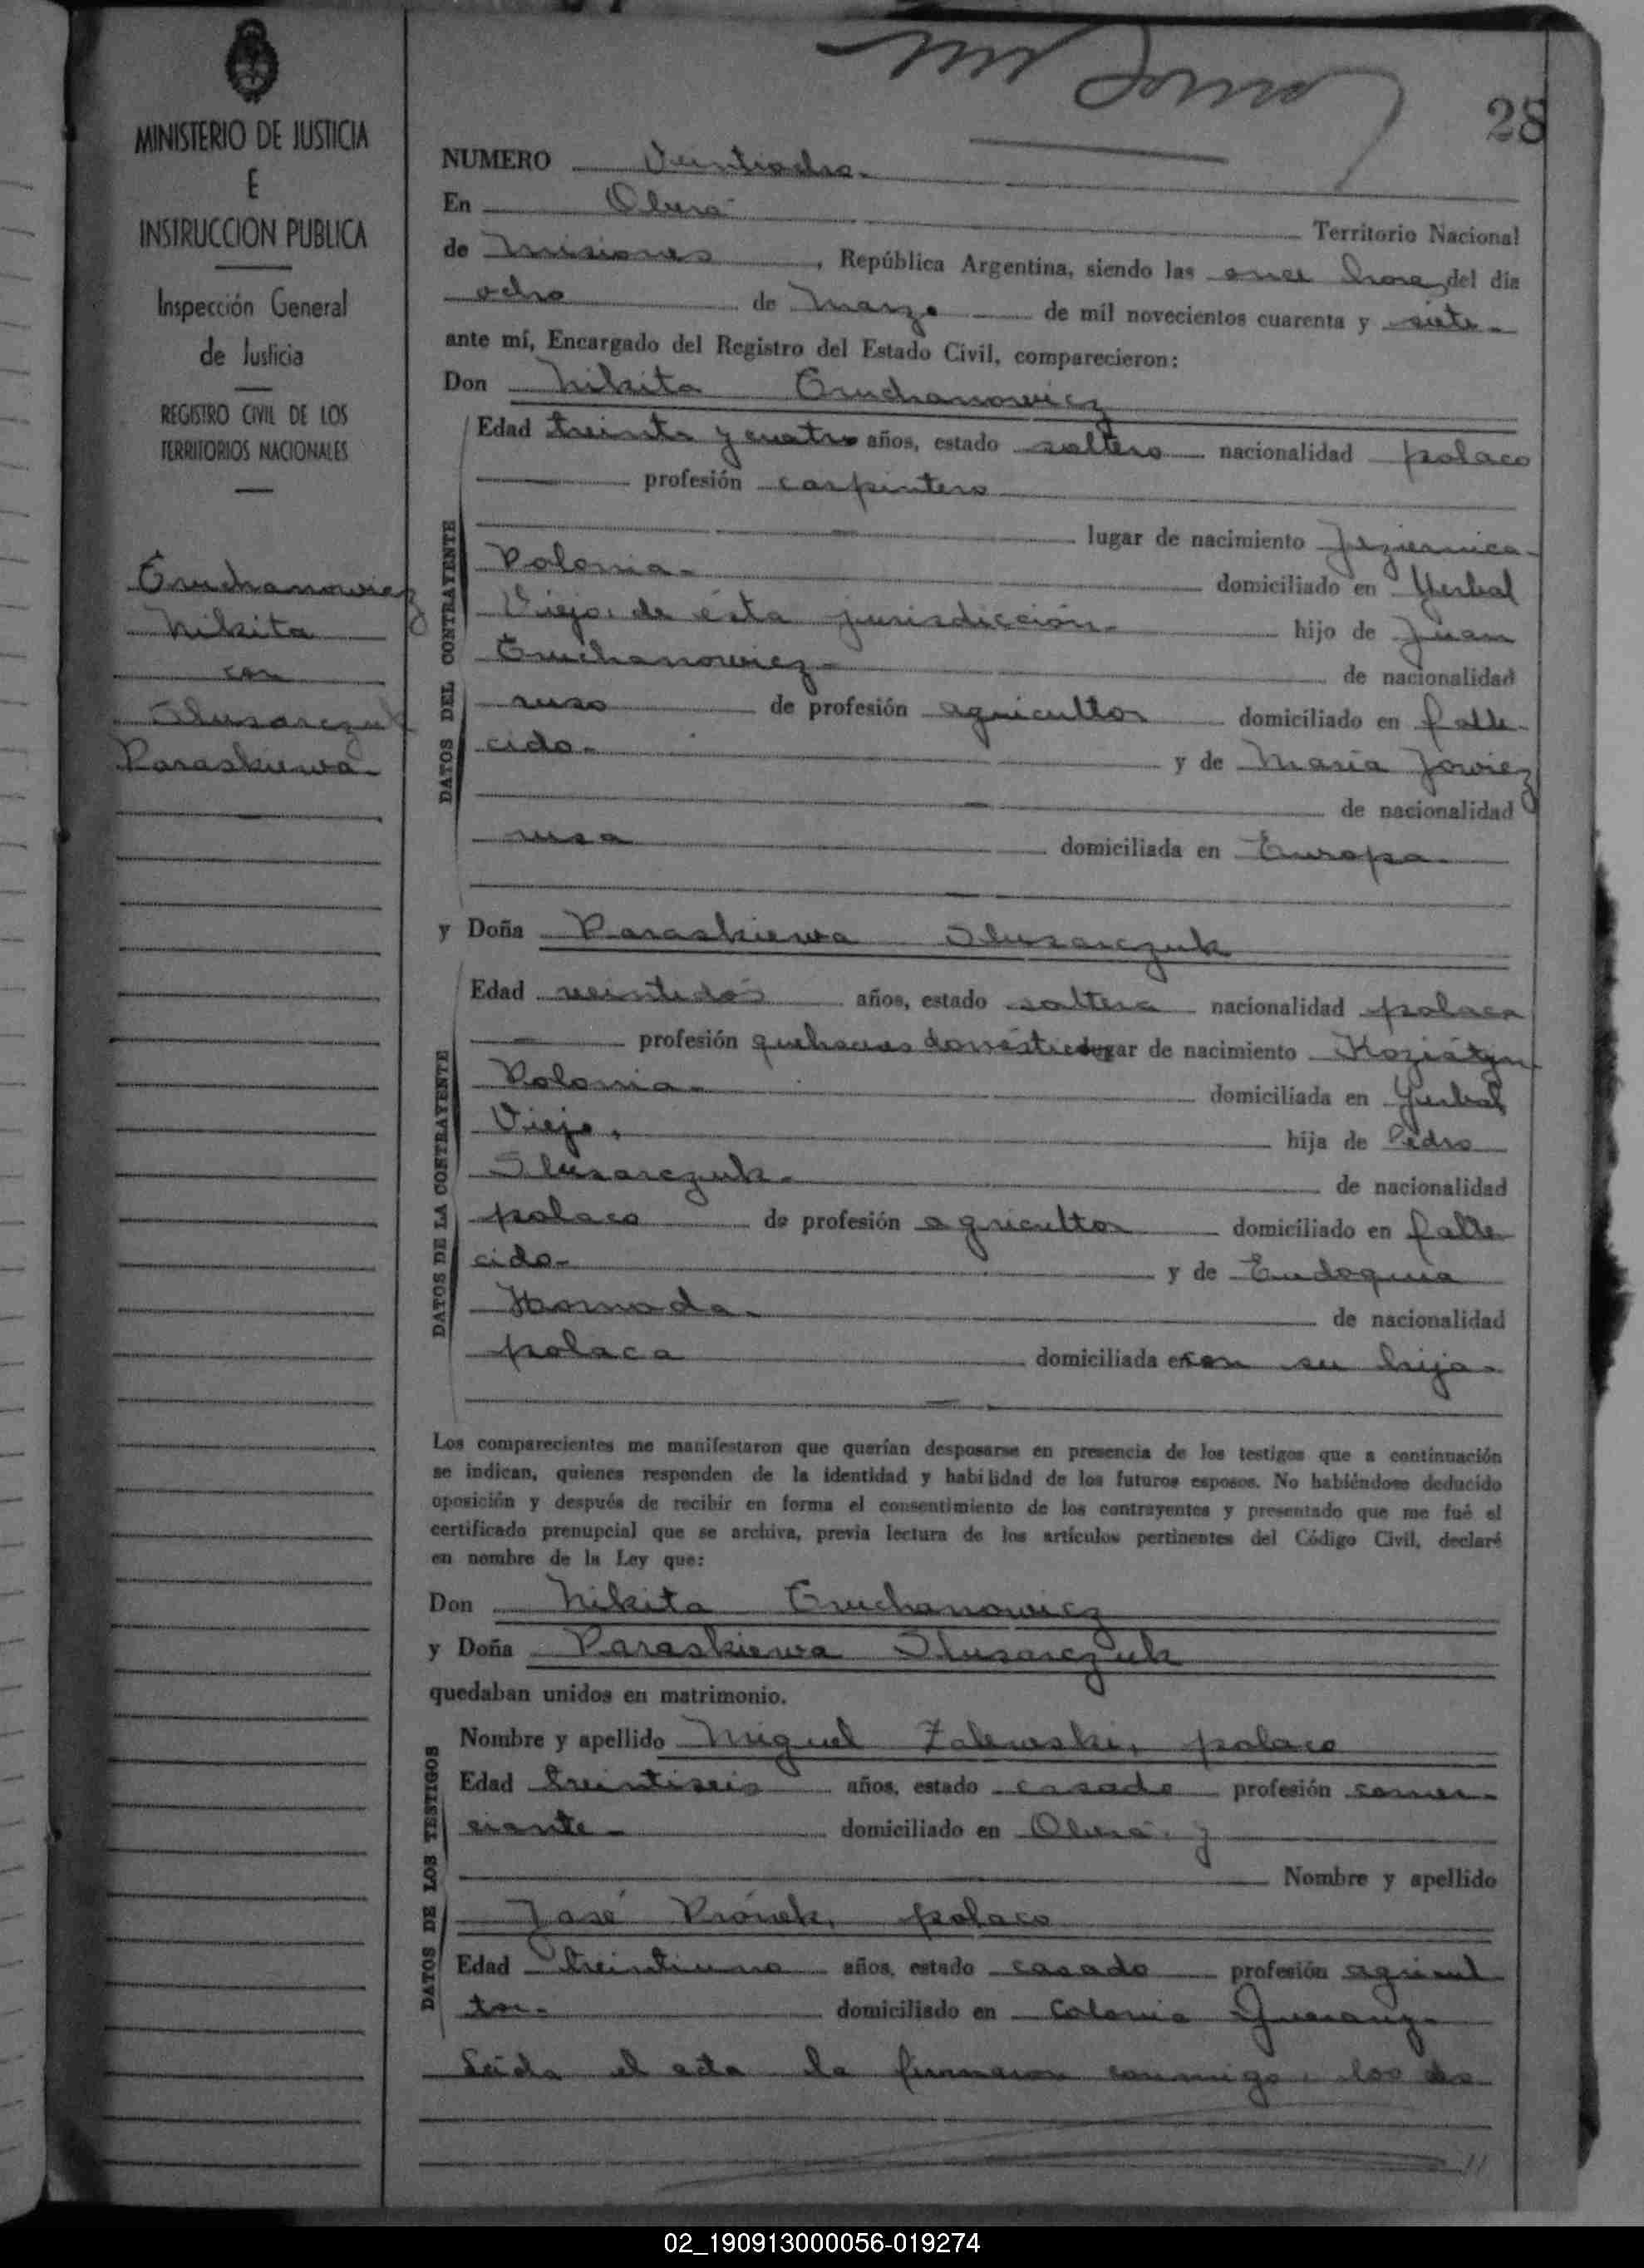 28
MINISTERIO DE JUSTICIA
E
INSTRUCCION PUBLICA
Inspección General
de Justicia
REGISTRO CIVIL DE LOS
TERRITORIOS NACIONALES
Truchanowicz
Nikita
con
Slusarczuk
Paraskiewa
NUMERO Veintiocho.
En Oberá Territorio Nacional
de Misiones, República Argentina, siendo las once horas del día
ocho de Marzo de mil novecientos cuarenta y siete
ante mí, Encargado del Registro del Estado Civil, comparecieron:
Don Nikita Truchanowicz
DATOS DEL CONTRAYENTE
Edad treinta y cuatro años, estado soltero nacionalidad polaco
profesión carpintero
lugar de nacimiento Jeziernica
Polonia- domiciliado en Yerbal
Viejo, de ésta jurisdicción- hijo de Juan
Truchanowicz- de nacionalidad
ruso de profesión agricultor domiciliado en falle-
cido- y de María Jowicz
de nacionalidad
rusa domiciliada en Europa
y Doña Paraskiewa Slusarczuk
DATOS DE LA CONTRAYENTE
Edad veintidós años, estado soltera nacionalidad polaca
profesión quehaceres domésticos lugar de nacimiento Koziatyn
Polonia- domiciliada en Yerbal
Viejo, hija de Pedro
Slusarczuk- de nacionalidad
polaco de profesión agricultor domiciliado en falle
cido- y de Eudoquia
de nacionalidad
polaca domiciliada en con su hija-
Los comparecientes me manifestaron que querían desposarse en presencia de los testigos que a continuación
se indican, quienes responden de la identidad y habilidad de los futuros esposos. No habiéndose deducido
oposición y después de recibir en forma el consentimiento de los contrayentes y presentado que me fué el
certificado prenupcial que se archiva, previa lectura de los artículos pertinentes del Código Civil, declaré
en nombre de la Ley que:
Don Nikita Truchanowicz
y Doña Paraskiewa Slusarczuk
quedaban unidos en matrimonio.
DATOS DE LOS TESTIGOS
Nombre y apellido Miguel Zalewski, polaco
Edad treintiseis años, estado casado profesión comer-
ciante- domiciliado en Oberá, y
Nombre y apellido
José polaco
Edad treintiuno años, estado casado profesión agricul
tor- domiciliado en Colonia Guarany-
Leída el acta la firmaron conmigo, los
02_190913000056-019274